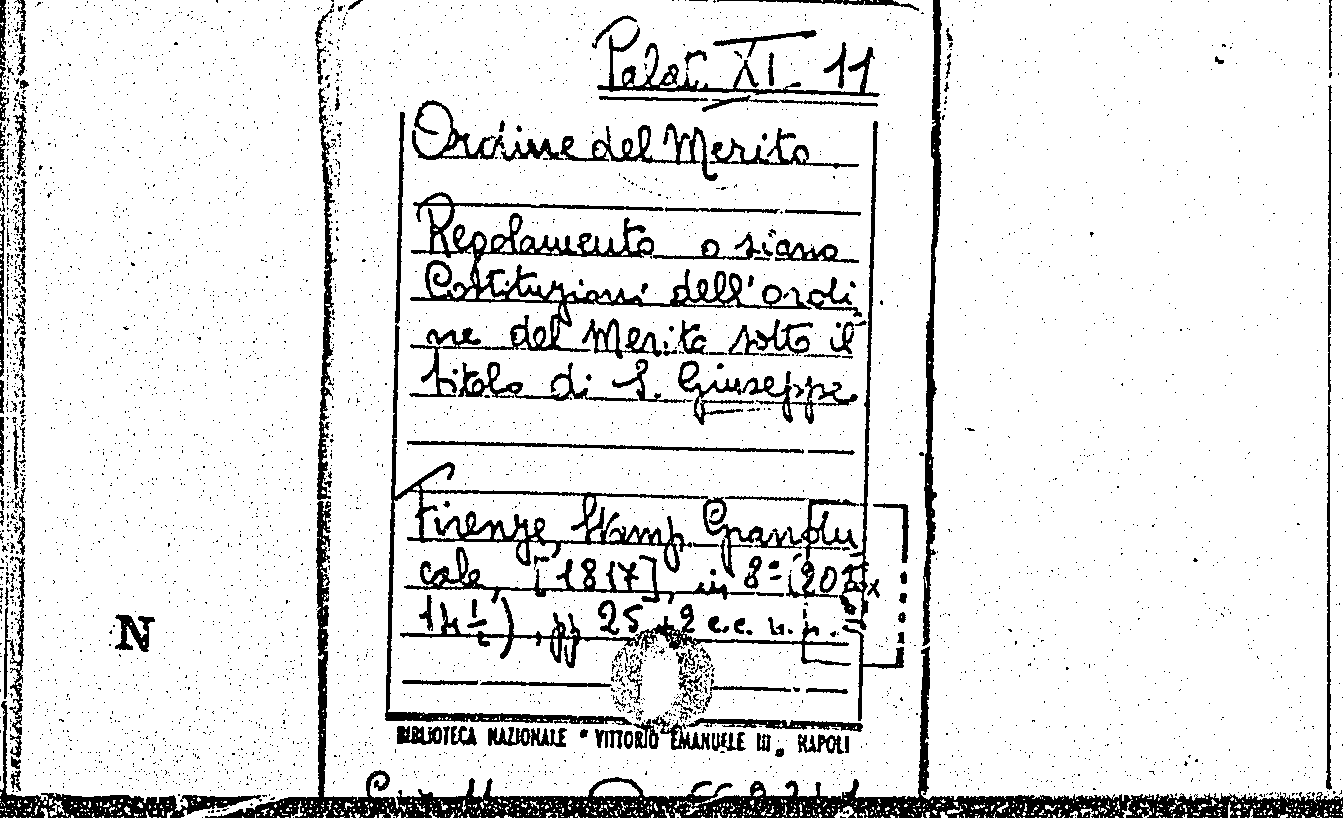 Palat. XI- 11
Ordine del Merito
Regolamento o siano
Costituzioni dell'ordi
ne del Merito sotto il
titolo di S. Giuseppe.
Firenze, Stamp. Grandu
cale, [1817], in 8º (20,5x
14 1/2), pp 25 +2 c.c. n.n.
BIBLIOTECA NAZIONALE "VITTORIO EMANUELE III", NAPOLI
N